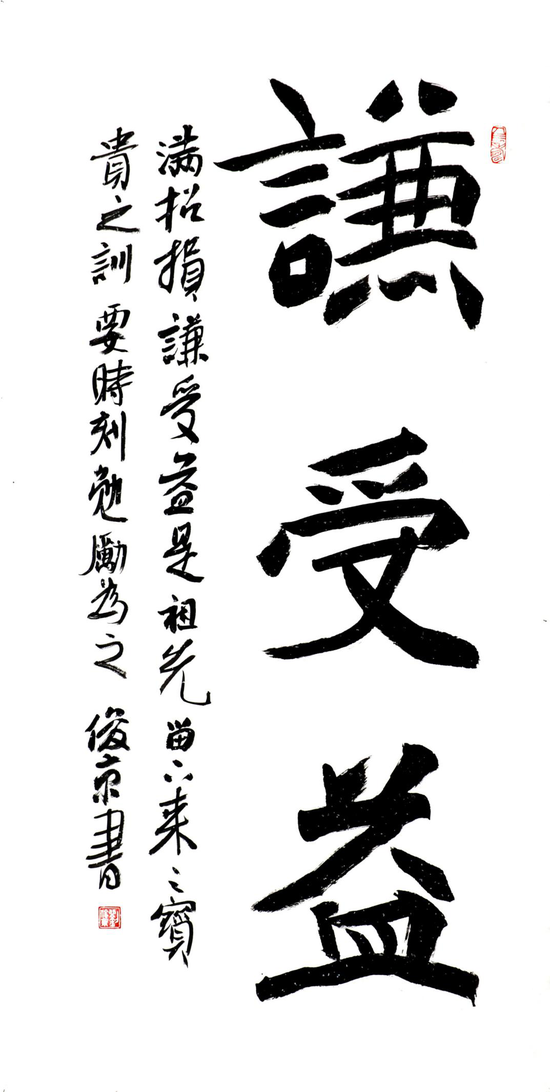 謙受益
满招損謙受益是祖先留下来之寶
貴之訓要時刻勉勵為之俊京書